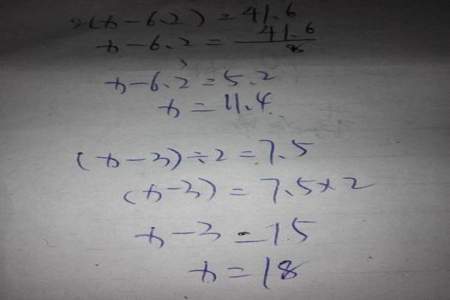 8(x-6.2)=41.6
x-6.2=41.6/8
x-6.2=5.2
x=11.4
(x-3)÷2=7.5
(x-3)=7.5×2
x-3=15
x=18